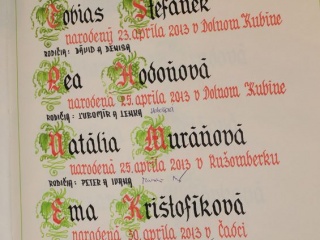 Tobias Štefánek
narodený 23.apríla 2013 v Dolnom Kubíne
RODIČIA: DÁVID A DENISA
Rea Hodoňová
narodená 25.apríla 2013 v Dolnom Kubíne
RODIČIA: ĽUBOMÍR A LENKA
Natália Muráňová
narodená 25.apríla 2013 v Ružomberku
RODIČIA: PETER A IVANA
Ema Krištofíková
narodená 30.apríla 2013 v Čadci